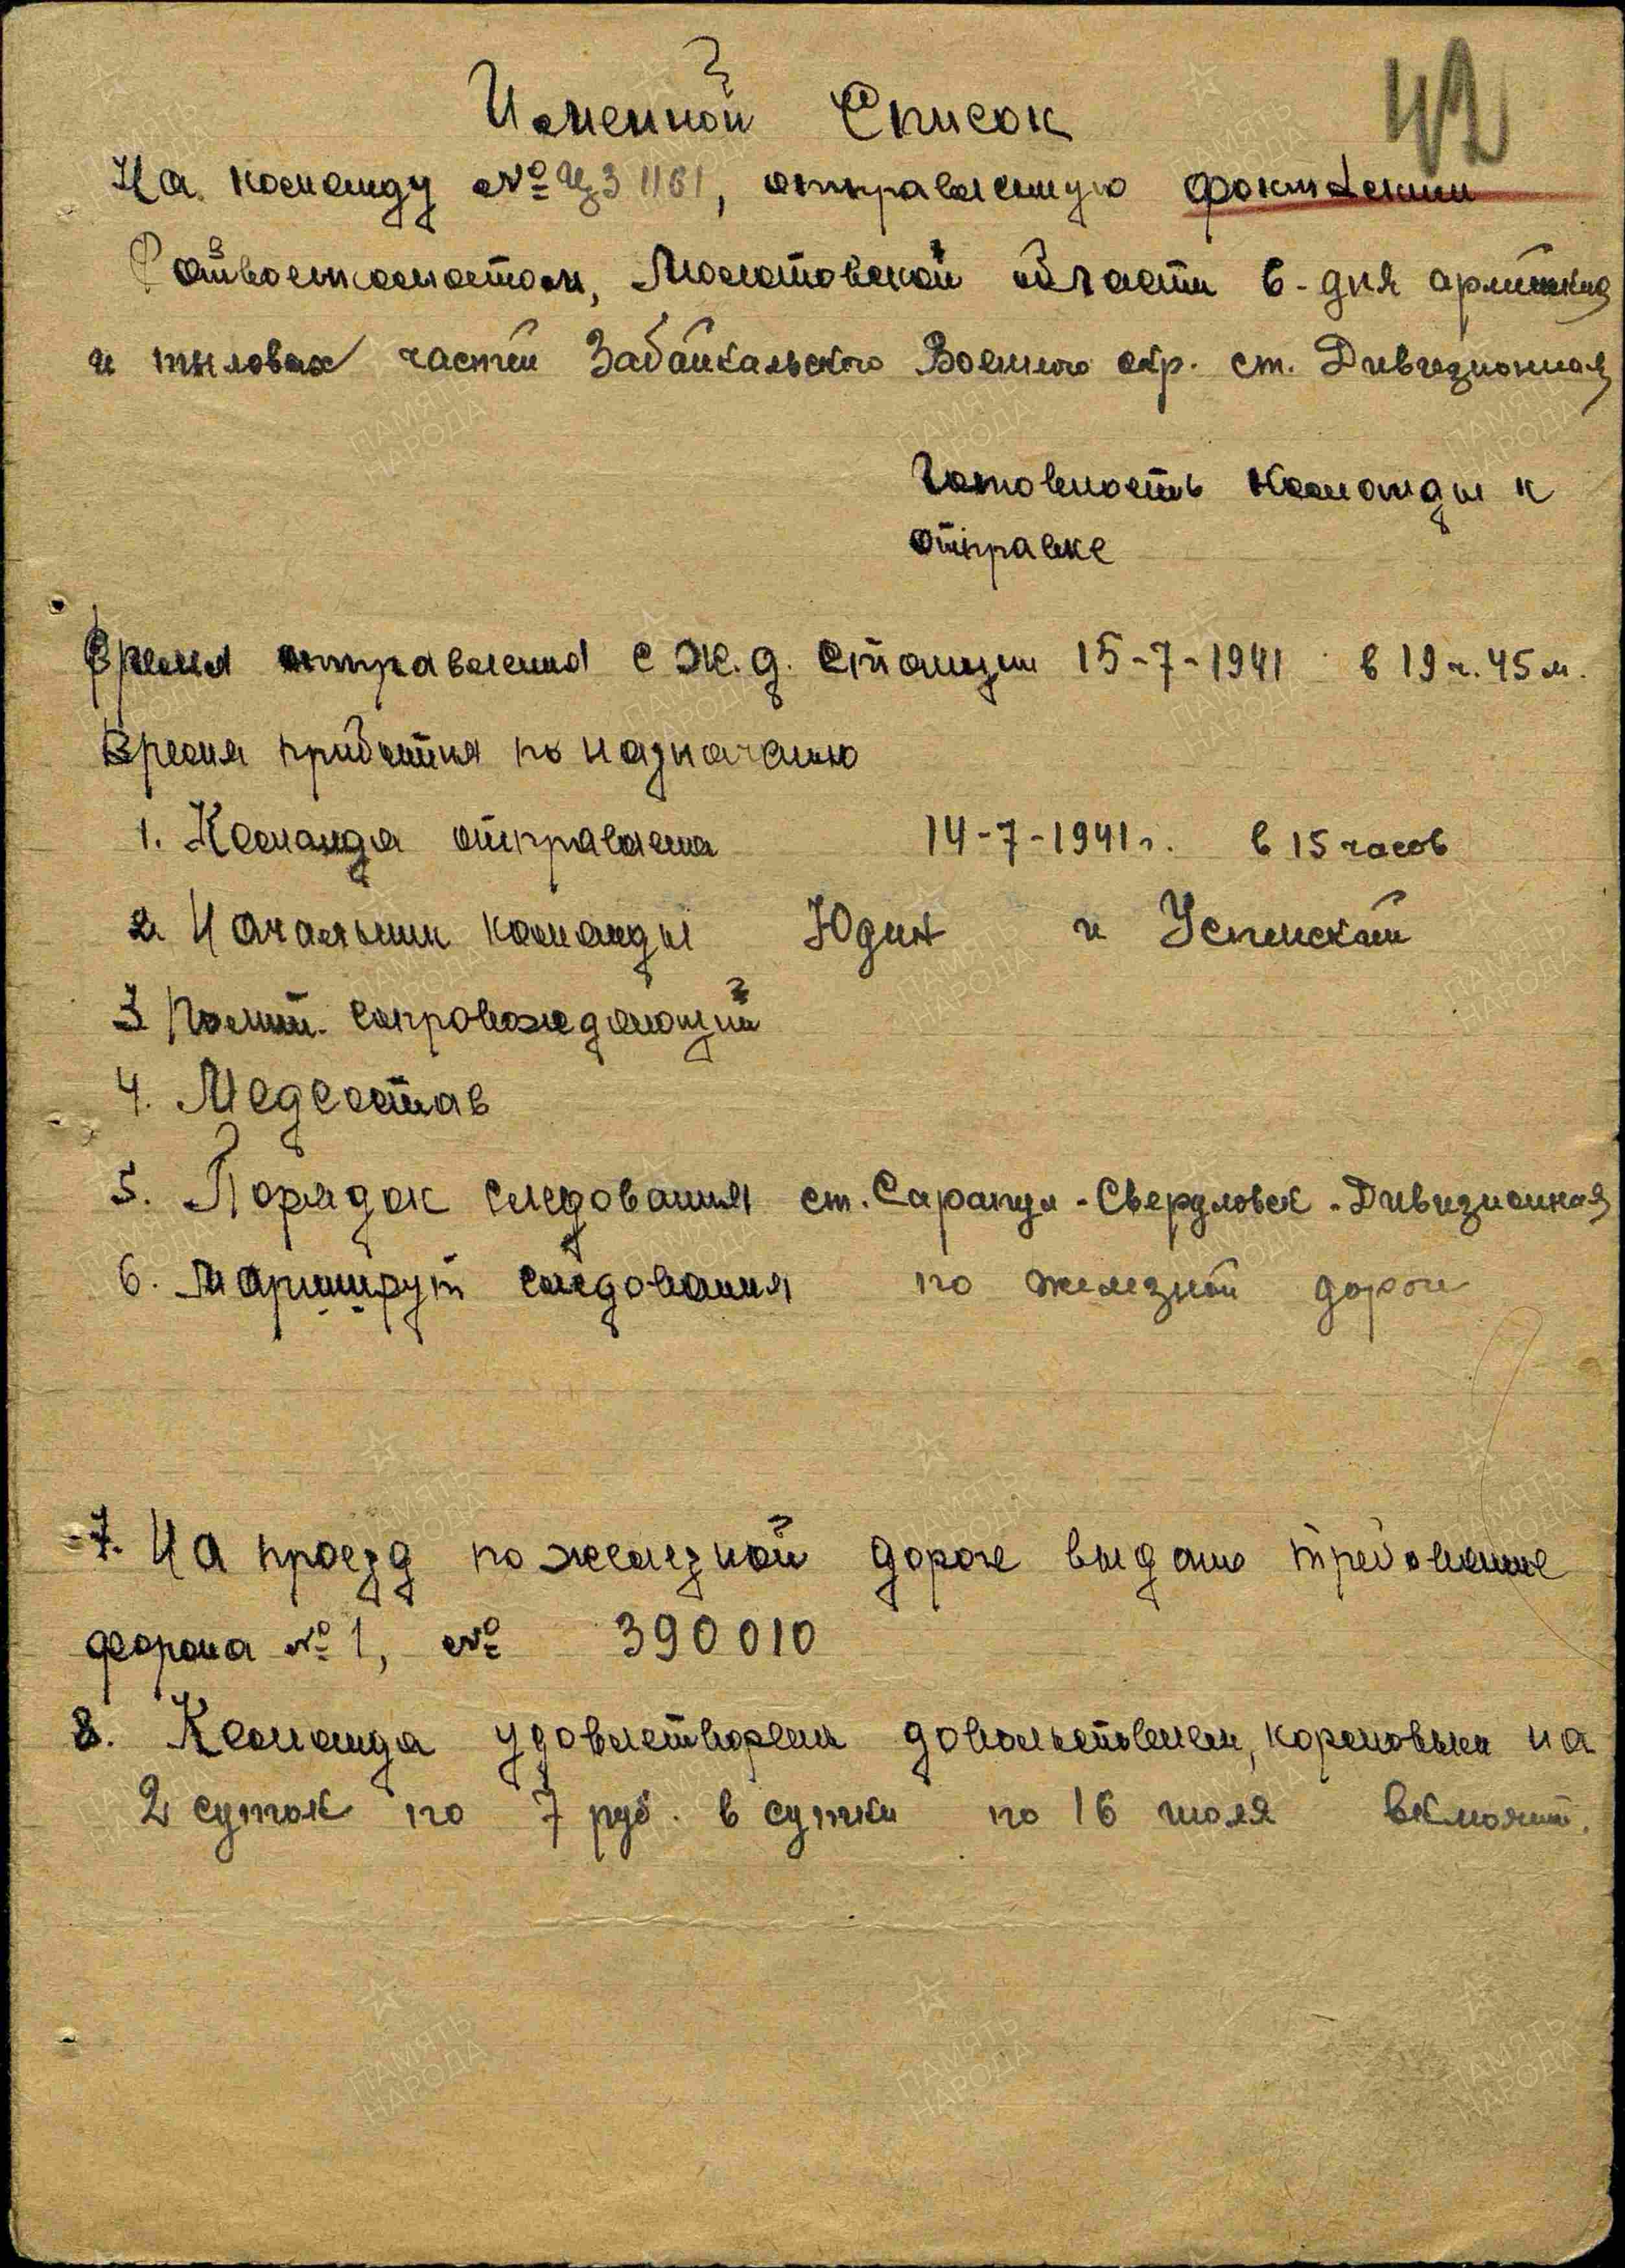 42
Именной Список
На команду № ЦЗ 1161, отправленную Фокинским
Райвоенкоматом, Молотовской области 6-дня армейских
и тыловых частей Забайкальского Военного окр. ст. Дивизионная
Готовность команды к
отправке
Время отправления с ж.д. станции 15-7-1941 в 19 ч. 45 м.
Время прибытия по назначению
1. Команда отправлена 14-7-1941 г. в 15 часов
2. Начальник команды Юдин и Успенский
3. Полит. сопровождающий
4. Медсостав
5. Порядок следования ст. Сарапул - Свердловск - Дивизионная
6. Маршрут следования по железной дороге
7. На проезд по железной дороге выдано требование
форма № 1, № 390010
8. Команда удовлетворена довольствием, кормовыми на
2 суток по 7 руб. в сутки по 16 июля включит.
ПАМЯТЬ НАРОДА